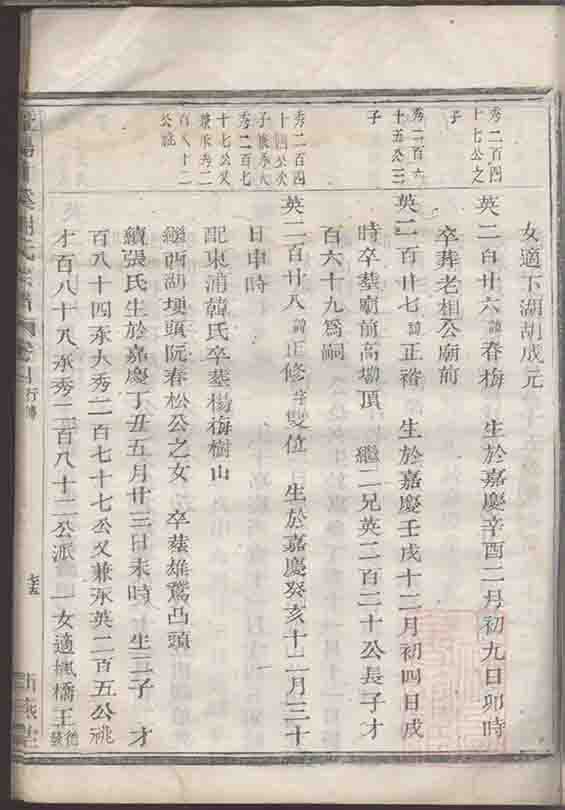 女適下湖胡成元
秀二百四十七公之子
英二百廿六諱春梅 生於嘉慶辛酉二月初九日卯時
卒葬老相公廟前
秀二百六十五公三子
英二百廿七諱正裕 生於嘉慶壬戌十二月初四日戌
時卒葬廟前高墈頂 繼二兄英二百二十公長子才
百六十九為嗣
秀二百四十四公次子後承大秀二百七十七公又兼承秀二百八十二公派
英二百廿八諱正修字雙位 生於嘉慶癸亥十二月三十
日申時
配東浦韓氏卒葬楊梅樹山
繼西湖埂頭阮春松公之女 卒葬雄鵞凸頭
續張氏生於嘉慶丁丑五月廿三日未時 生三子 才
百八十四承大秀二百七十七公又兼承英二百五公祧
才百八十八承秀二百八十二公派 一女適楓橋王
氏宗譜
行傳